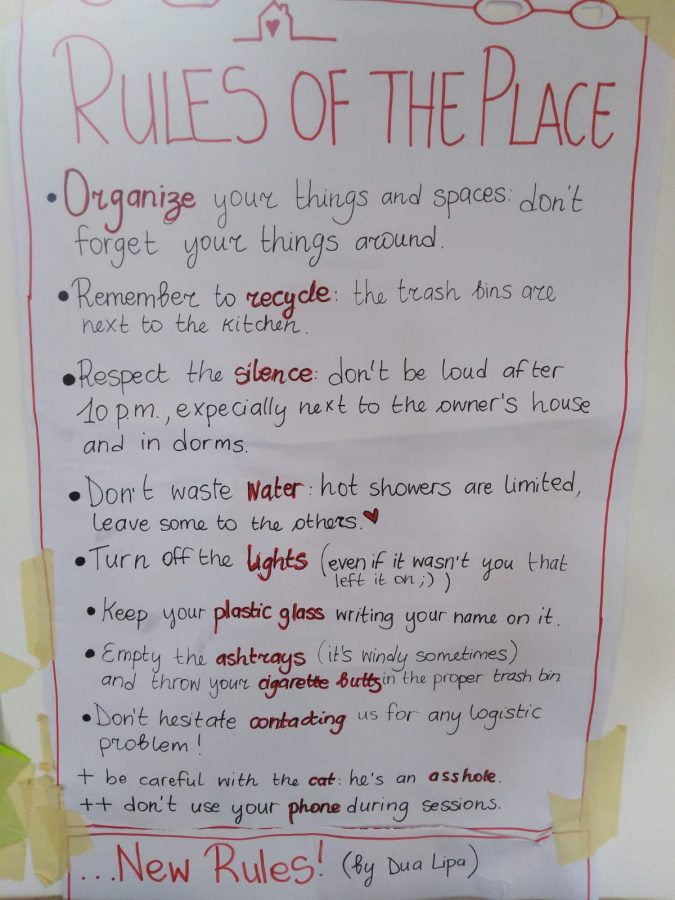 RULES OF THE PLACE
• Organize your things and spaces: don't
forget your things around.
• Remember to recycle: the trash bins are
next to the kitchen.
• Respect the silence: don't be loud after
10 p.m., expecially next to the owner's house
and in dorms.
• Don't waste water: hot showers are limited,
leave some to the others. ♥
• Turn off the lights (even if it wasn't you that
left it on ;) )
• Keep your plastic glass writing your name on it.
• Empty the ashtrays (it's windy sometimes)
and throw your cigarette butts in the proper trash bin
• Don't hesitate contacting us for any logistic
problem!
+ be careful with the cat: he's an asshole.
++ don't use your phone during sessions.
...New Rules! (by Dua Lipa)